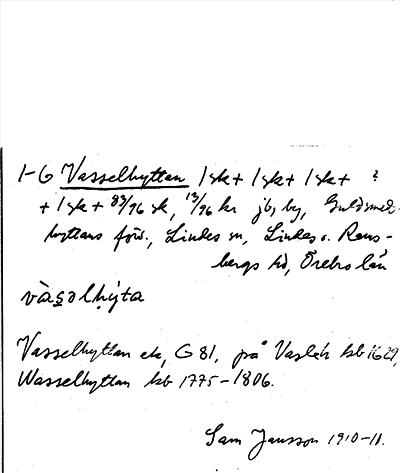 1-6 Vasselhyttan 1 sk + 1 sk + 1 sk + ?
+ 1 sk + 83/96 sk, 13/96 kr jb, by, Guldsmeds-
hyttans förs., Lindes sn, Lindes o. Rams-
bergs hd, Örebro län
vàsəlhỳta
Vasselhyttan etc, G 81, på kb 1629,
Wasselhyttan kb 1775-1806.
Sam Jansson 1910-11.